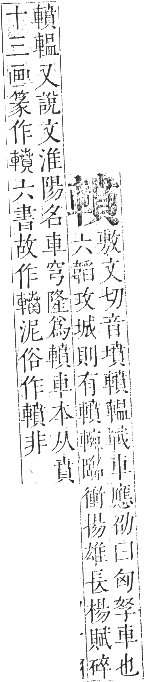 轒
敷文切音墳轒轀戰車應劭曰匈孥車也
六韜攻城則有轒轀臨衝揚雄長楊賦碎
轒轀又說文淮陽名車穹隆爲轒車本从賁
十三画篆作轒六書故作泥俗作轒非